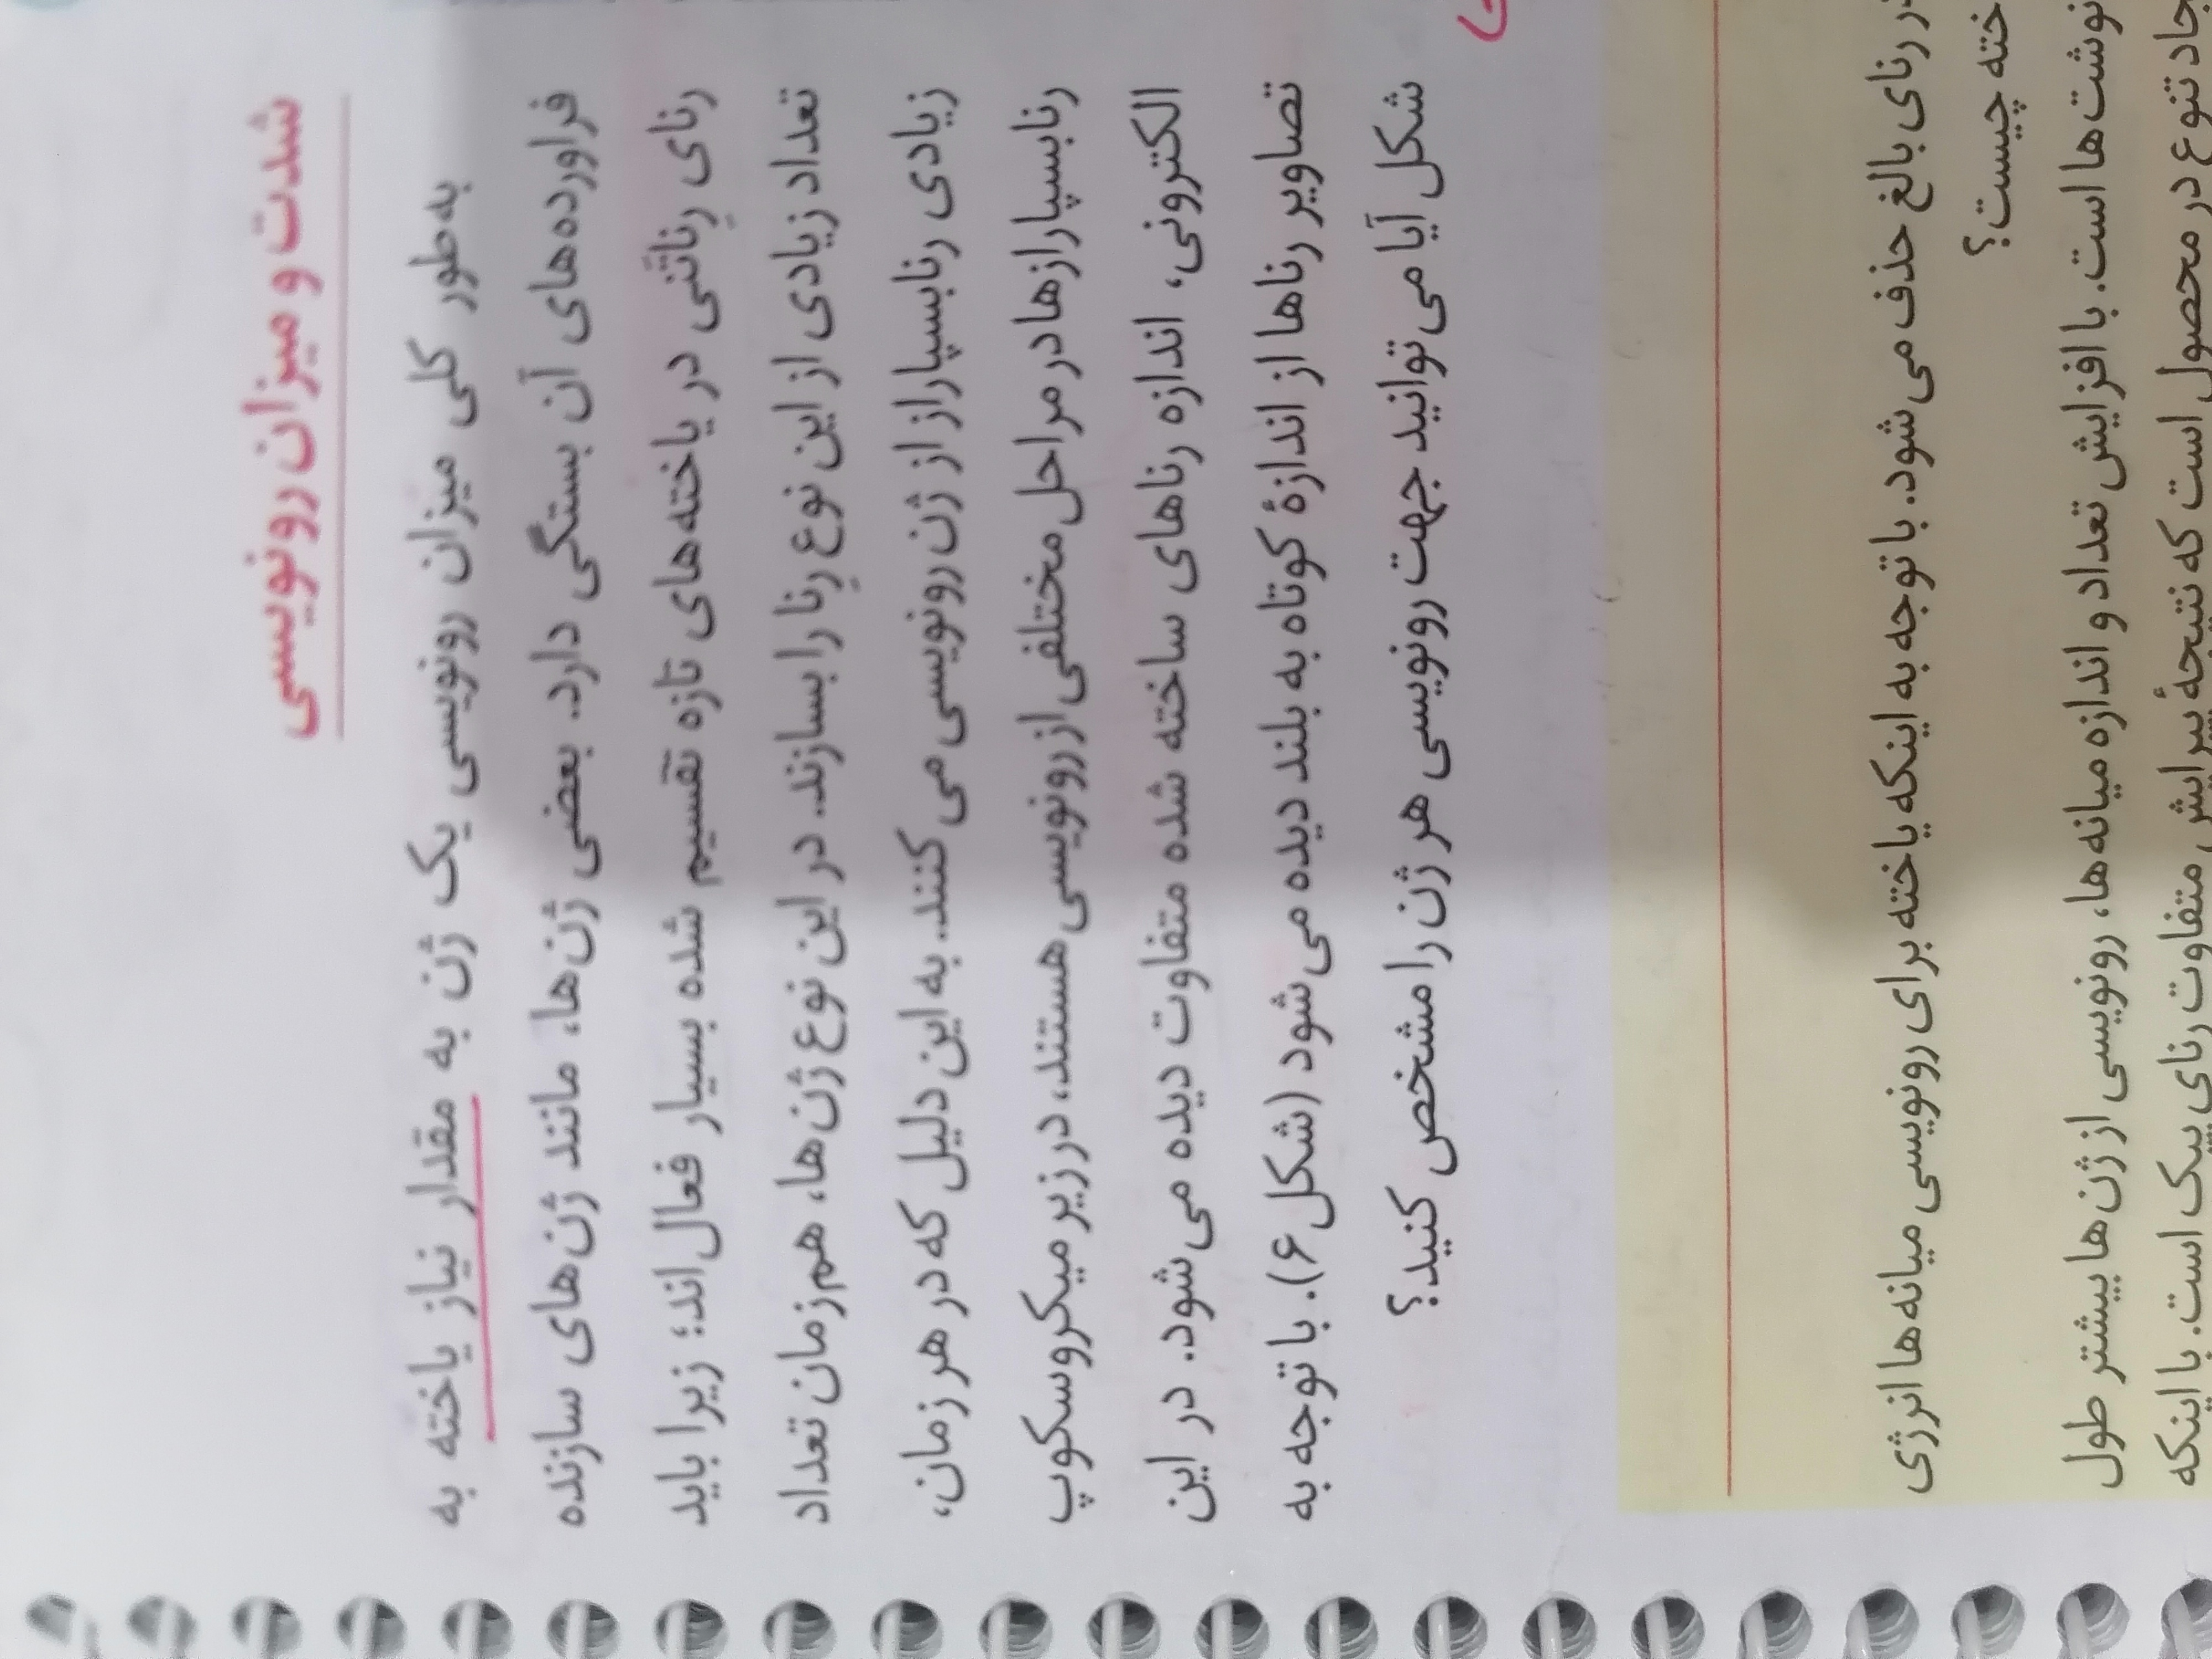 شدت و میزان رونویسی
به‌طور کلی میزان رونویسی یک ژن به مقدار نیاز یاخته به
فراورده‌های آن بستگی دارد. بعضی ژن‌ها، مانند ژن‌های سازنده
رنای رِناتَنی در یاخته‌های تازه تقسیم شده بسیار فعال‌اند؛ زیرا باید
تعداد زیادی از این نوع رِنا را بسازند. در این نوع ژن‌ها، هم‌زمان تعداد
زیادی رنابسپاراز از ژن رونویسی می‌کنند. به این دلیل که در هر زمان،
رنابسپارازها در مراحل مختلفی از رونویسی هستند، در زیر میکروسکوپ
الکترونی، اندازه رناهای ساخته شده متفاوت دیده می‌شود. در این
تصاویر رناها از اندازهٔ کوتاه به بلند دیده می‌شود (شکل ۶). با توجه به
شکل آیا می‌توانید جهت رونویسی هر ژن را مشخص کنید؟
رنای بالغ حذف می‌شود. با توجه به اینکه یاخته برای رونویسی میانه‌ها انرژی
چیست؟
ها است. با افزایش تعداد و اندازه میانه‌ها، رونویسی از ژن‌ها بیشتر طول
تنوع در محصول است که نتیجهٔ پیرایش متفاوت رنای پیک است. با اینکه